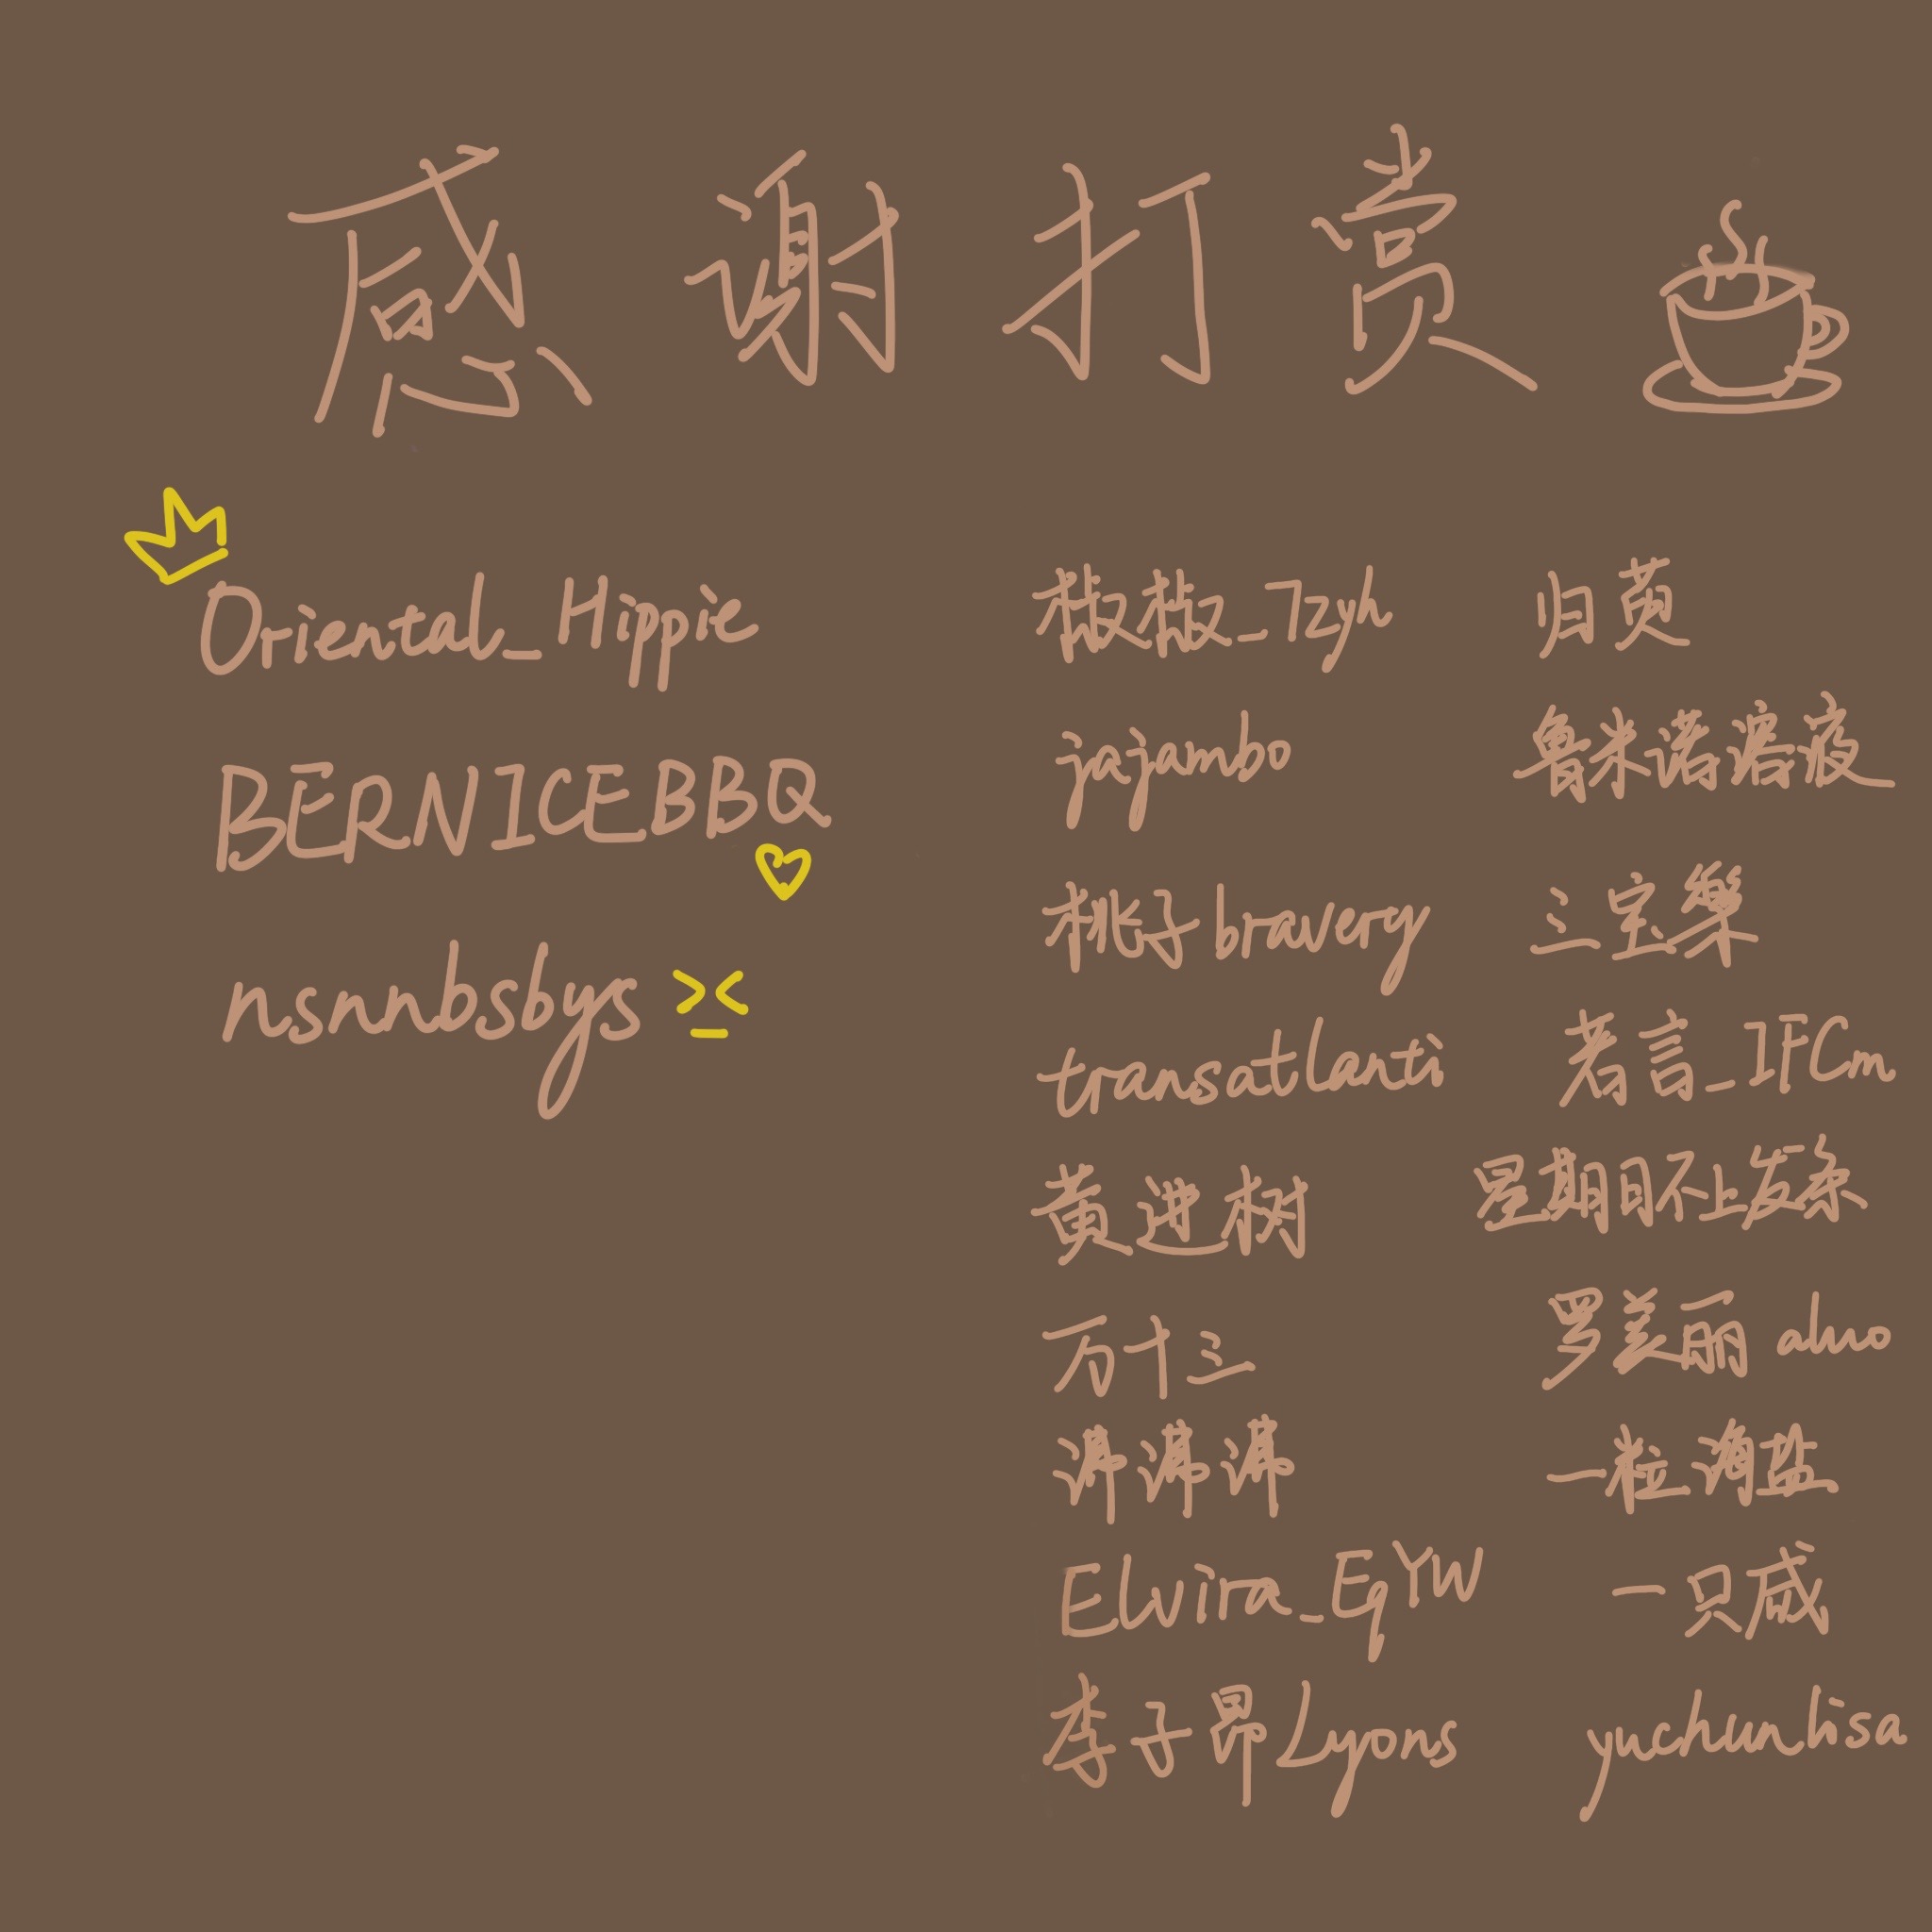 感谢打赏
Oriental_Hippie
BERNICEBBQ
nsnnbsbys
枝枝_7zyh
jojambo
桃子brawey
transatlanti
黄进树
万十三
Elvira_EqYW
李子昂Lyons
归英
三宝樂
若言_IFCm
星期日不上发条
罗美丽aluo
一粒海盐
一只咸
yuchunchisa